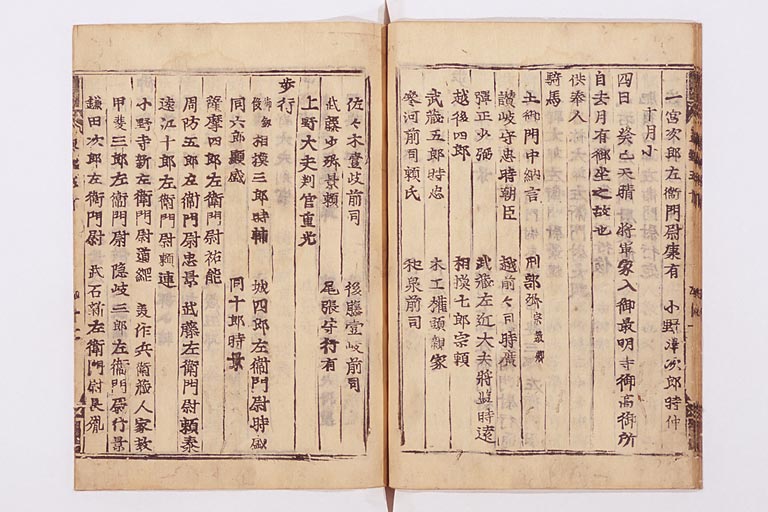 一宮次郎左衛門尉康有　小野澤次郎時仲
十月小
四日癸巳天晴將軍家入御最明寺御高御所
自去月有御坐之故也
供奉人
騎馬
土御門中納言　刑部
讃岐守忠時朝臣　越前々司時廣
彈正少弼　武藏左近大夫將監時遠
越後四郎　相摸七郎宗頼
武藏五郎時忠　木工權頭親家
參河前司頼氏　和泉前司
佐々木壹岐前司　後藤壹岐前司
武藤少弼景頼　尾張守行有
上野大夫判官重光
歩行
相摸三郎時輔　城四郎左衛門尉時盛
同六郎顯盛　同十郎時景
薩摩四郎左衛門尉祐能
周防五郎左衛門尉忠景　武藤左衛門尉頼泰
遠江十郎左衛門尉頼連
小野寺新左衛門尉道繼　美作兵衛藏人家教
甲斐三郎左衛門尉　隠岐三郎左衛門尉行景
鎌田次郎左衛門尉　武石新左衛門尉長胤